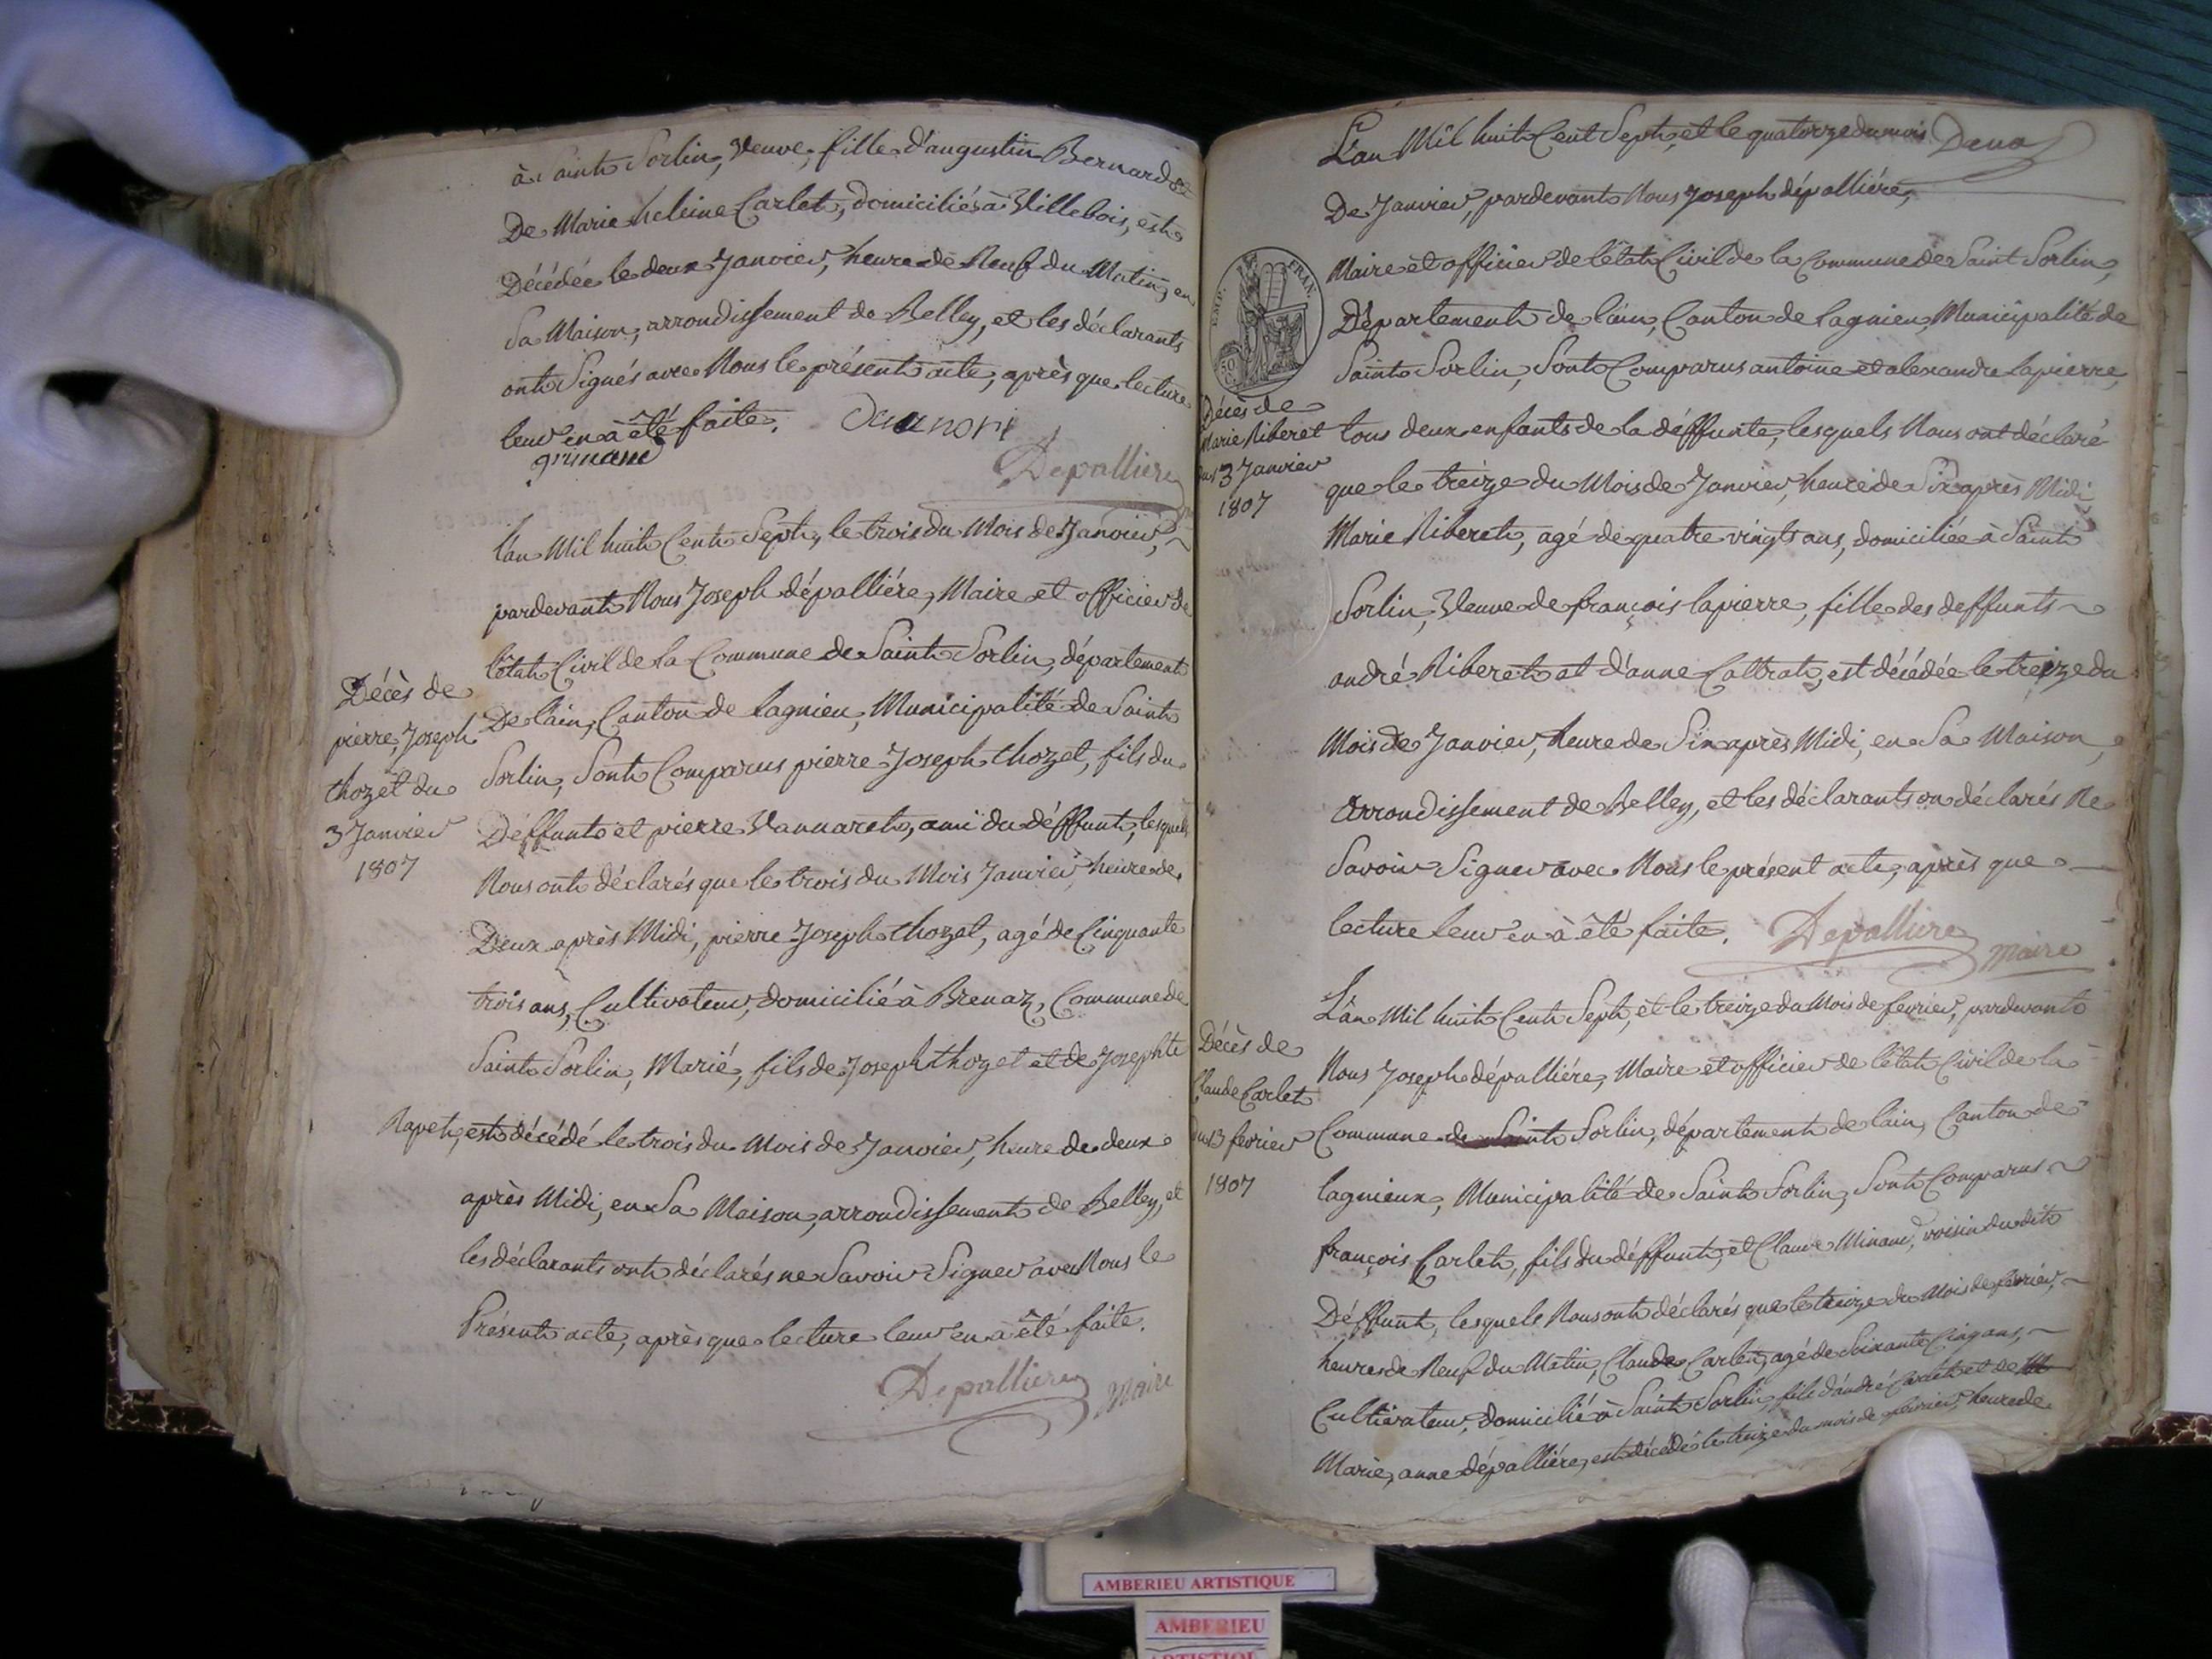 à Saint Sorlin, Veuve, fille d'augustin Bernard &
De Marie heleine Carlet, domiciliés à Villebois, est
Décédée le deux Janvier, heure de Neuf du Matin, en
Sa Maison, arrondissement de Belley, et les déclarants
ont Signés avec Nous le présent acte, après que lecture
leur en à été faite.
Depalliere
L'an Mil huit Cent Sept, le trois du Mois de Janvier,
pardevant Nous Joseph dépalliére, Maire et officier de
l'état Civil de la Commune de Saint Sorlin, département
De l'ain, Canton de lagnieu, Municipalité de Saint
Sorlin, Sont Comparus pierre Joseph thozet, fils du
Déffunt et pierre Vannaret, ami du déffunt, lesquels
Nous ont déclarés que le trois du Mois Janvier, heure de
Deux après Midi, pierre Joseph thozet, agé de Cinquante
trois ans, Cultivateur, domicilié à Brenaz, Commune de
Saint Sorlin, Marié, fils de Joseph thozet et de Josephte
Rapet, est décédé le trois du Mois de Janvier, heure de deux
après Midi, en Sa Maison, arrondissement de Belley, et
les déclarants ont déclarés ne Savoir Signer avec Nous le
Présent acte, après que lecture leur en à été faite.
Depalliere Maire
Décès de
pierre, Joseph
thozet du
3 Janvier
1807
L'an Mil huit Cent Sept, et le quatorze du mois
De Janvier, pardevant Nous Joseph dépalliére,
Maire et officier de l'état Civil de la Commune de Saint Sorlin,
Département de l'ain, Canton de lagnieu, Municipalité de
Saint Sorlin, Sont Comparus antoine et alexandre lapierre,
tous deux enfants de la déffunte, lesquels Nous ont déclaré
que le treize du Mois de Janvier, heure de Six après Midi
Marie Riberet, agé de quatre vingts ans, domiciliée à Saint
Sorlin, Veuve de françois lapierre, fille des deffunts
andré Riberet et d'anne Cattrat, est décédée le treize du
Mois de Janvier, heure de Six après Midi, en Sa Maison,
Arrondissement de Belley, et les déclarants on déclarés Ne
Savoir Signer avec Nous le présent acte, après que
lecture leur en à été faite.
Depalliere Maire
EMP. FRAN.
50 C.
Décès de
Marie Riberet
du 13 Janvier
1807
L'an Mil huit Cent Sept, et le treize du Mois de fevrier, pardevant
Nous Joseph dépalliére, Maire et officier de l'état Civil de la
Commune de Saint Sorlin, département de l'ain, Canton de
lagnieux, Municipalité de Saint Sorlin, Sont Comparus
françois Carlet, fils du déffunt, et Claude Minand, voisin dudit
Déffunt, lesquels Nous ont déclarés que le treize du Mois de février,
heures de Neuf du Matin, Claude Carlet, agé de Soixante Cinq ans,
Cultivateur, domicilié à Saint Sorlin, fils d'andré Carlet et de
Marie, anne dépalliére, est décédé le treize du mois de février, heure de
Décès de
Claude Carlet
du 13 fevrier
1807
AMBERIEU ARTISTIQUE
AMBERIEU
ARTISTIQUE